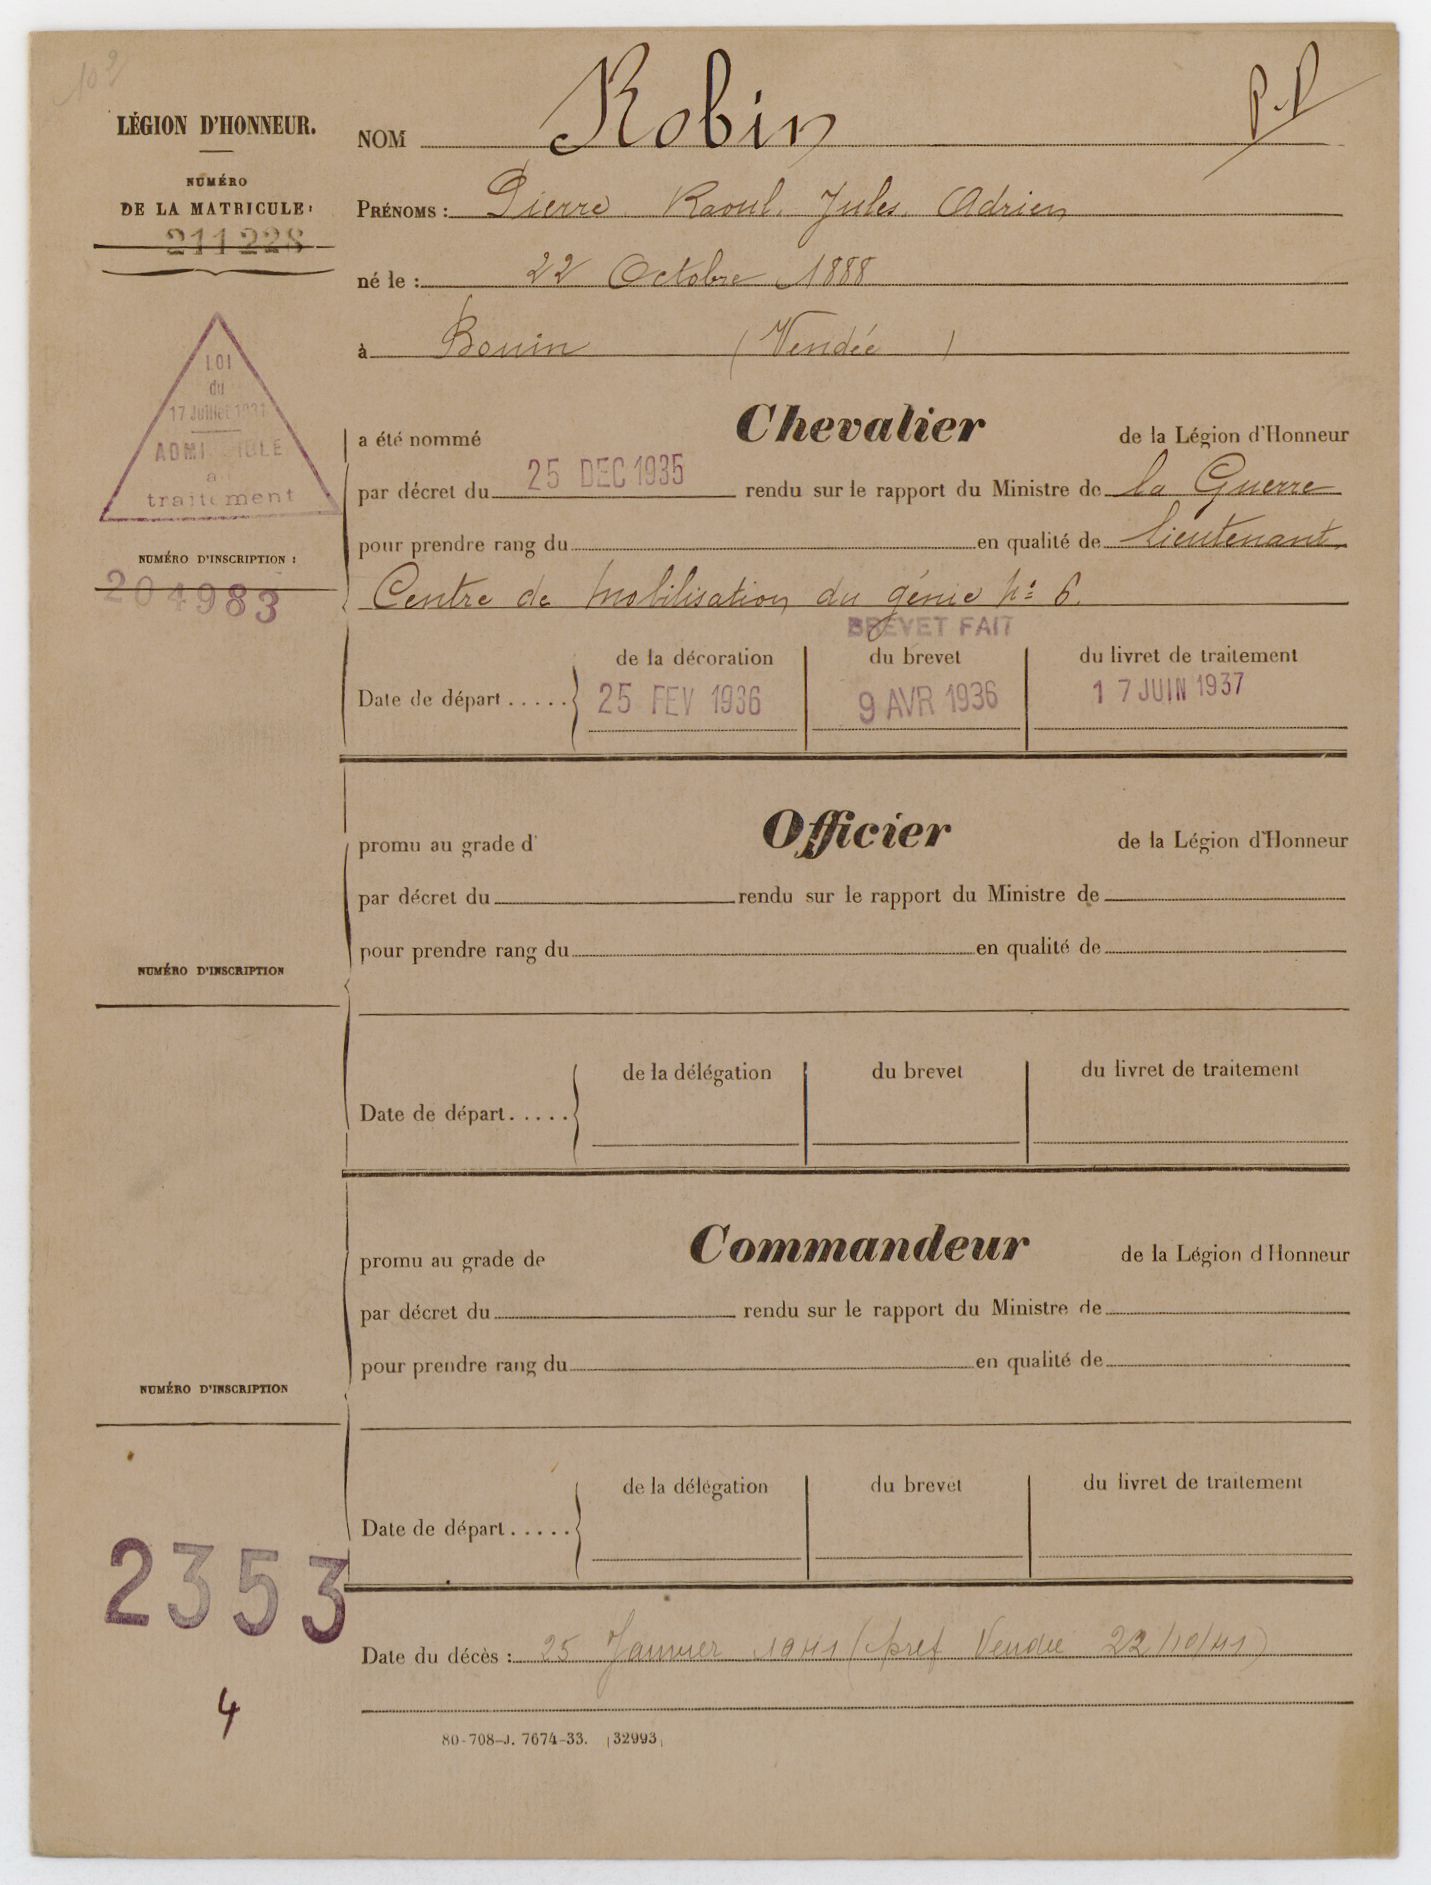 109
LÉGION D'HONNEUR.
NUMÉRO
DE LA MATRICULE:
211228
NOM Robin P.P
PRÉNOMS : Pierre Raoul. Jules. Adrien
né le : 22 Octobre 1888
à Bouin (Vendée)
LOI
du
17 Juillet 1931
ADMISSIBLE
au
traitement
a été nommé Chevalier de la Légion d'Honneur
par décret du 25 DEC 1935 rendu sur le rapport du Ministre de la Guerre
pour prendre rang du en qualité de lieutenant
NUMÉRO D'INSCRIPTION :
204983
Centre de mobilisation du génie N° 6.
BREVET FAIT
de la décoration du brevet du livret de traitement
Date de départ ..... 25 FEV 1936 9 AVR 1936 17 JUIN 1937
promu au grade d' Officier de la Légion d'Honneur
par décret du rendu sur le rapport du Ministre de
pour prendre rang du en qualité de
NUMÉRO D'INSCRIPTION
de la délégation du brevet du livret de traitement
Date de départ.....
promu au grade de Commandeur de la Légion d Honneur
par décret du rendu sur le rapport du Ministre de
pour prendre rang du en qualité de
NUMÉRO D'INSCRIPTION
de la délégation du brevet du livret de traitement
Date de départ.....
2353
Date du décès : 25 Janvier 1941 (préf Vendée 22/10/41)
4
80-708-J. 7674-33. (32993)